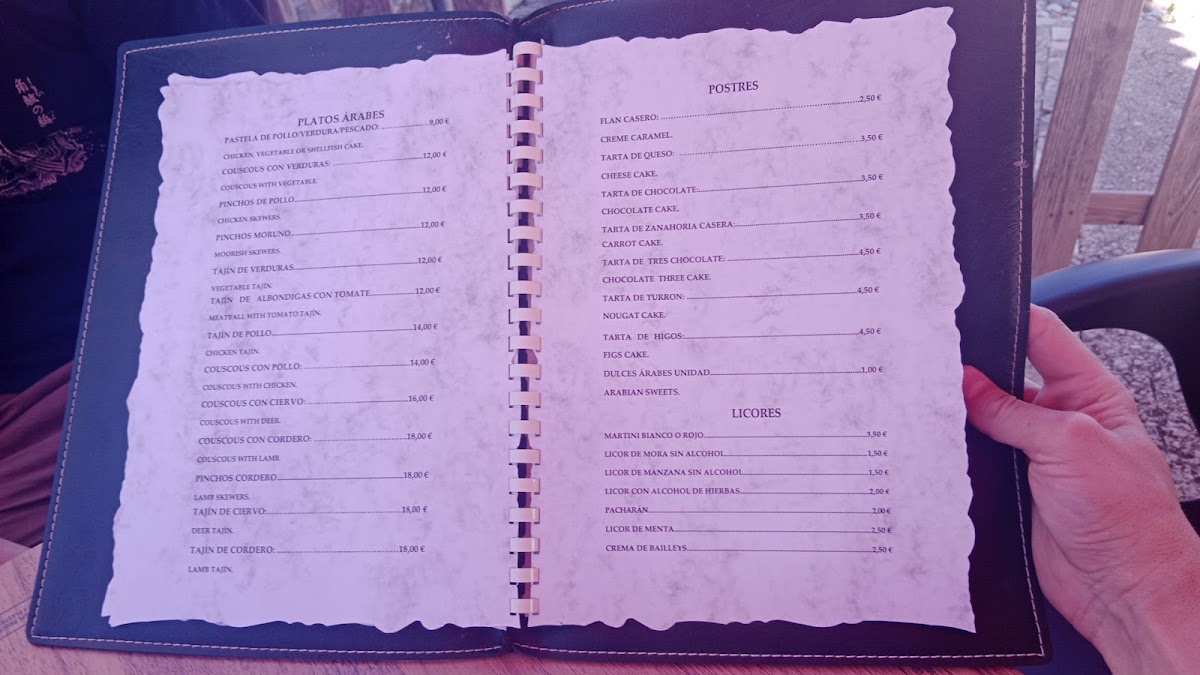 PLATOS ÁRABES
PASTELA DE POLLO/VERDURA/PESCADO: 9,00 €
CHICKEN, VEGETABLE OR SHELLFISH CAKE.
COUSCOUS CON VERDURAS: 12,00 €
COUSCOUS WITH VEGETABLE.
PINCHOS DE POLLO 12,00 €
CHICKEN SKEWERS.
PINCHOS MORUNO 12,00 €
MOORISH SKEWERS.
TAJÍN DE VERDURAS 12,00 €
VEGETABLE TAJÍN.
TAJÍN DE ALBONDIGAS CON TOMATE 12,00 €
MEATBALL WITH TOMATO TAJÍN.
TAJÍN DE POLLO 14,00 €
CHICKEN TAJÍN.
COUSCOUS CON POLLO: 14,00 €
COUSCOUS WITH CHICKEN.
COUSCOUS CON CIERVO: 16,00 €
COUSCOUS WITH DEER.
COUSCOUS CON CORDERO: 18,00 €
COUSCOUS WITH LAMB.
PINCHOS CORDERO 18,00 €
LAMB SKEWERS.
TAJÍN DE CIERVO: 18,00 €
DEER TAJÍN.
TAJIN DE CORDERO: 18,00 €
LAMB TAJÍN.
POSTRES
FLAN CASERO: 2,50 €
CREME CARAMEL.
TARTA DE QUESO: 3,50 €
CHEESE CAKE.
TARTA DE CHOCOLATE: 3,50 €
CHOCOLATE CAKE.
TARTA DE ZANAHORIA CASERA: 3,50 €
CARROT CAKE.
TARTA DE TRES CHOCOLATE: 4,50 €
CHOCOLATE THREE CAKE.
TARTA DE TURRON: 4,50 €
NOUGAT CAKE.
TARTA DE HIGOS: 4,50 €
FIGS CAKE.
DULCES ÁRABES UNIDAD 1,00 €
ARABIAN SWEETS.
LICORES
MARTINI BIANCO O ROJO 3,50 €
LICOR DE MORA SIN ALCOHOL 1,50 €
LICOR DE MANZANA SIN ALCOHOL 1,50 €
LICOR CON ALCOHOL DE HIERBAS 2,00 €
PACHARÁN 2,00 €
LICOR DE MENTA 2,50 €
CREMA DE BAILLEYS 2,50 €